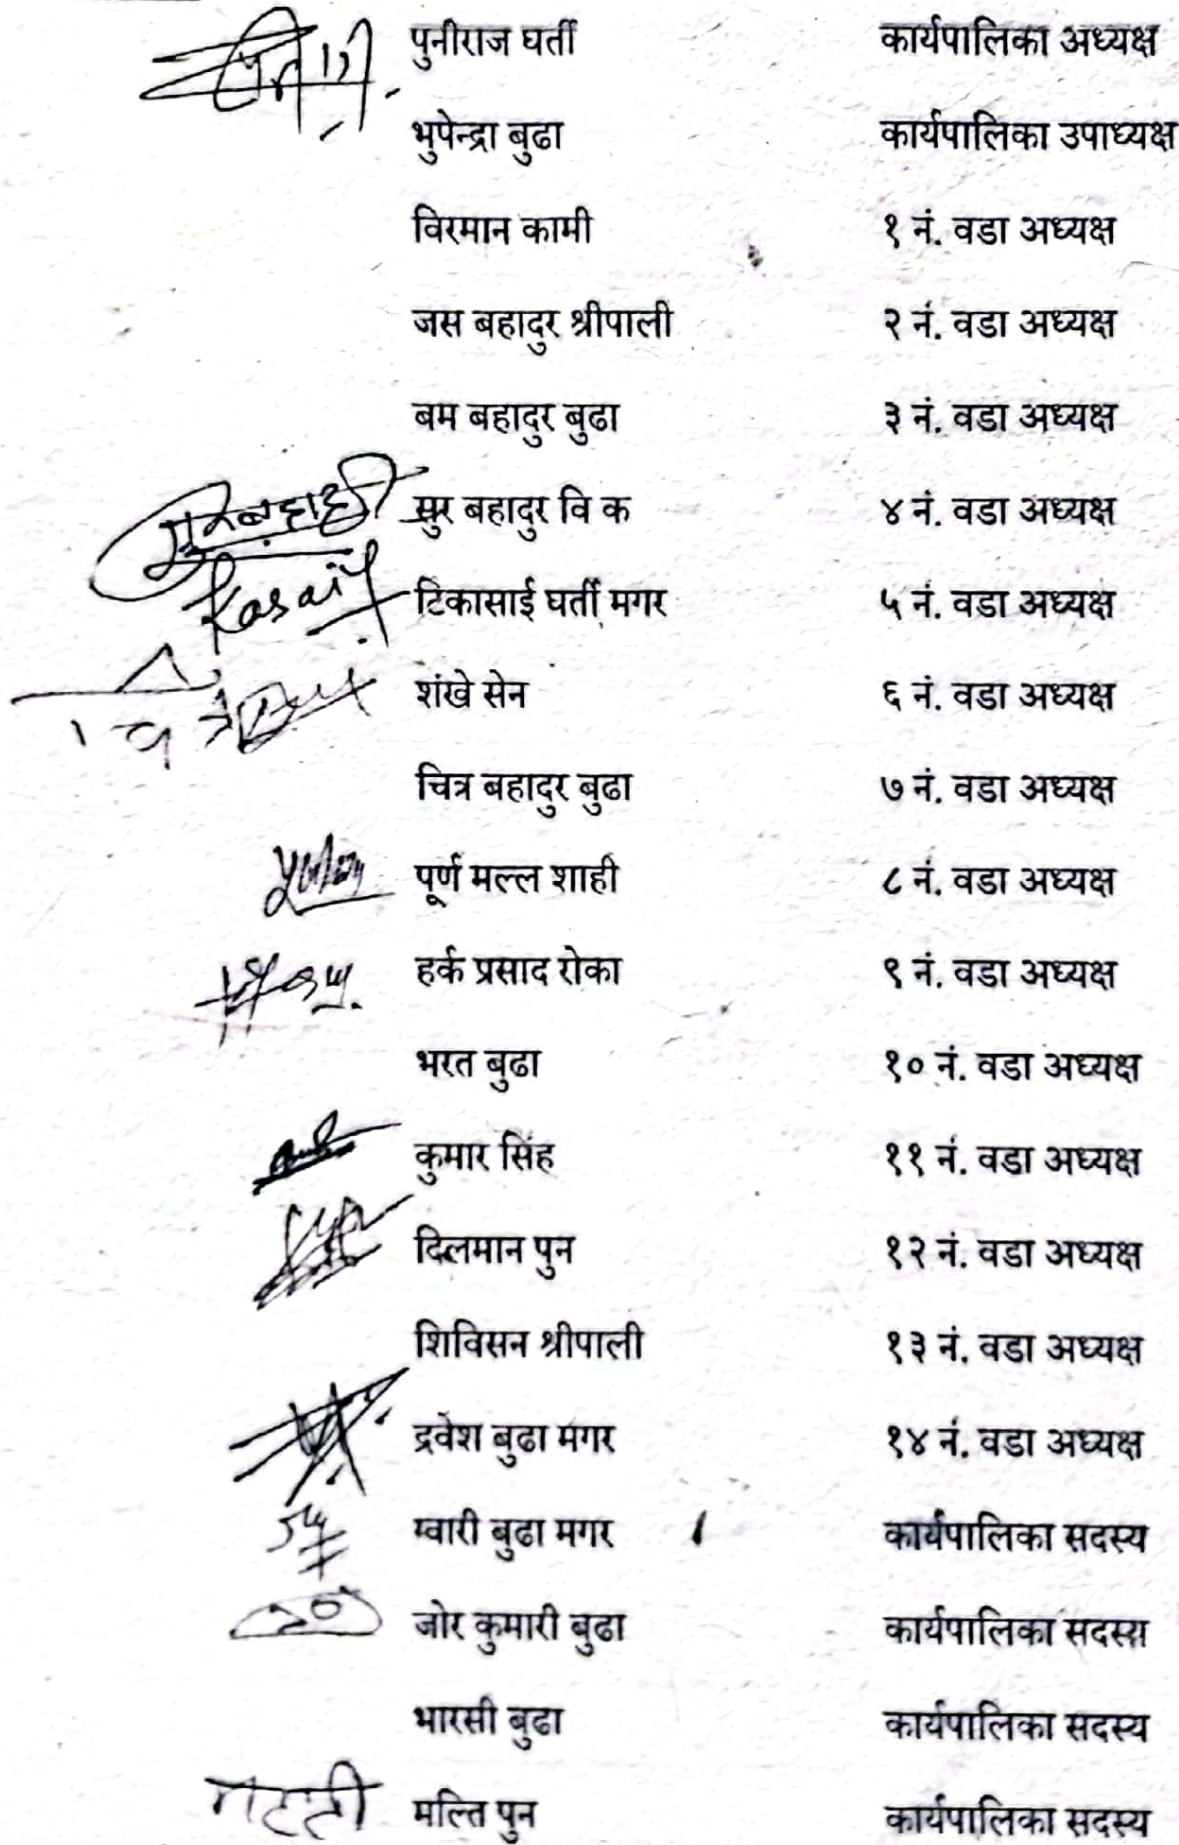 पुनीराज घर्ती कार्यपालिका अध्यक्ष
भुपेन्द्रा बुढा कार्यपालिका उपाध्यक्ष
विरमान कामी १ नं. वडा अध्यक्ष
जस बहादुर श्रीपाली २ नं. वडा अध्यक्ष
बम बहादुर बुढा ३ नं. वडा अध्यक्ष
सुर बहादुर वि क ४ नं. वडा अध्यक्ष
टिकासाई घर्ती मगर ५ नं. वडा अध्यक्ष
शंखे सेन ६ नं. वडा अध्यक्ष
चित्र बहादुर बुढा ७ नं. वडा अध्यक्ष
पूर्ण मल्ल शाही ८ नं. वडा अध्यक्ष
हर्क प्रसाद रोका ९ नं. वडा अध्यक्ष
भरत बुढा १० नं. वडा अध्यक्ष
कुमार सिंह ११ नं. वडा अध्यक्ष
दिलमान पुन १२ नं. वडा अध्यक्ष
शिविसन श्रीपाली १३ नं. वडा अध्यक्ष
द्रवेश बुढा मगर १४ नं. वडा अध्यक्ष
ग्वारी बुढा मगर कार्यपालिका सदस्य
जोर कुमारी बुढा कार्यपालिका सदस्य
भारसी बुढा कार्यपालिका सदस्य
मल्ति पुन कार्यपालिका सदस्य